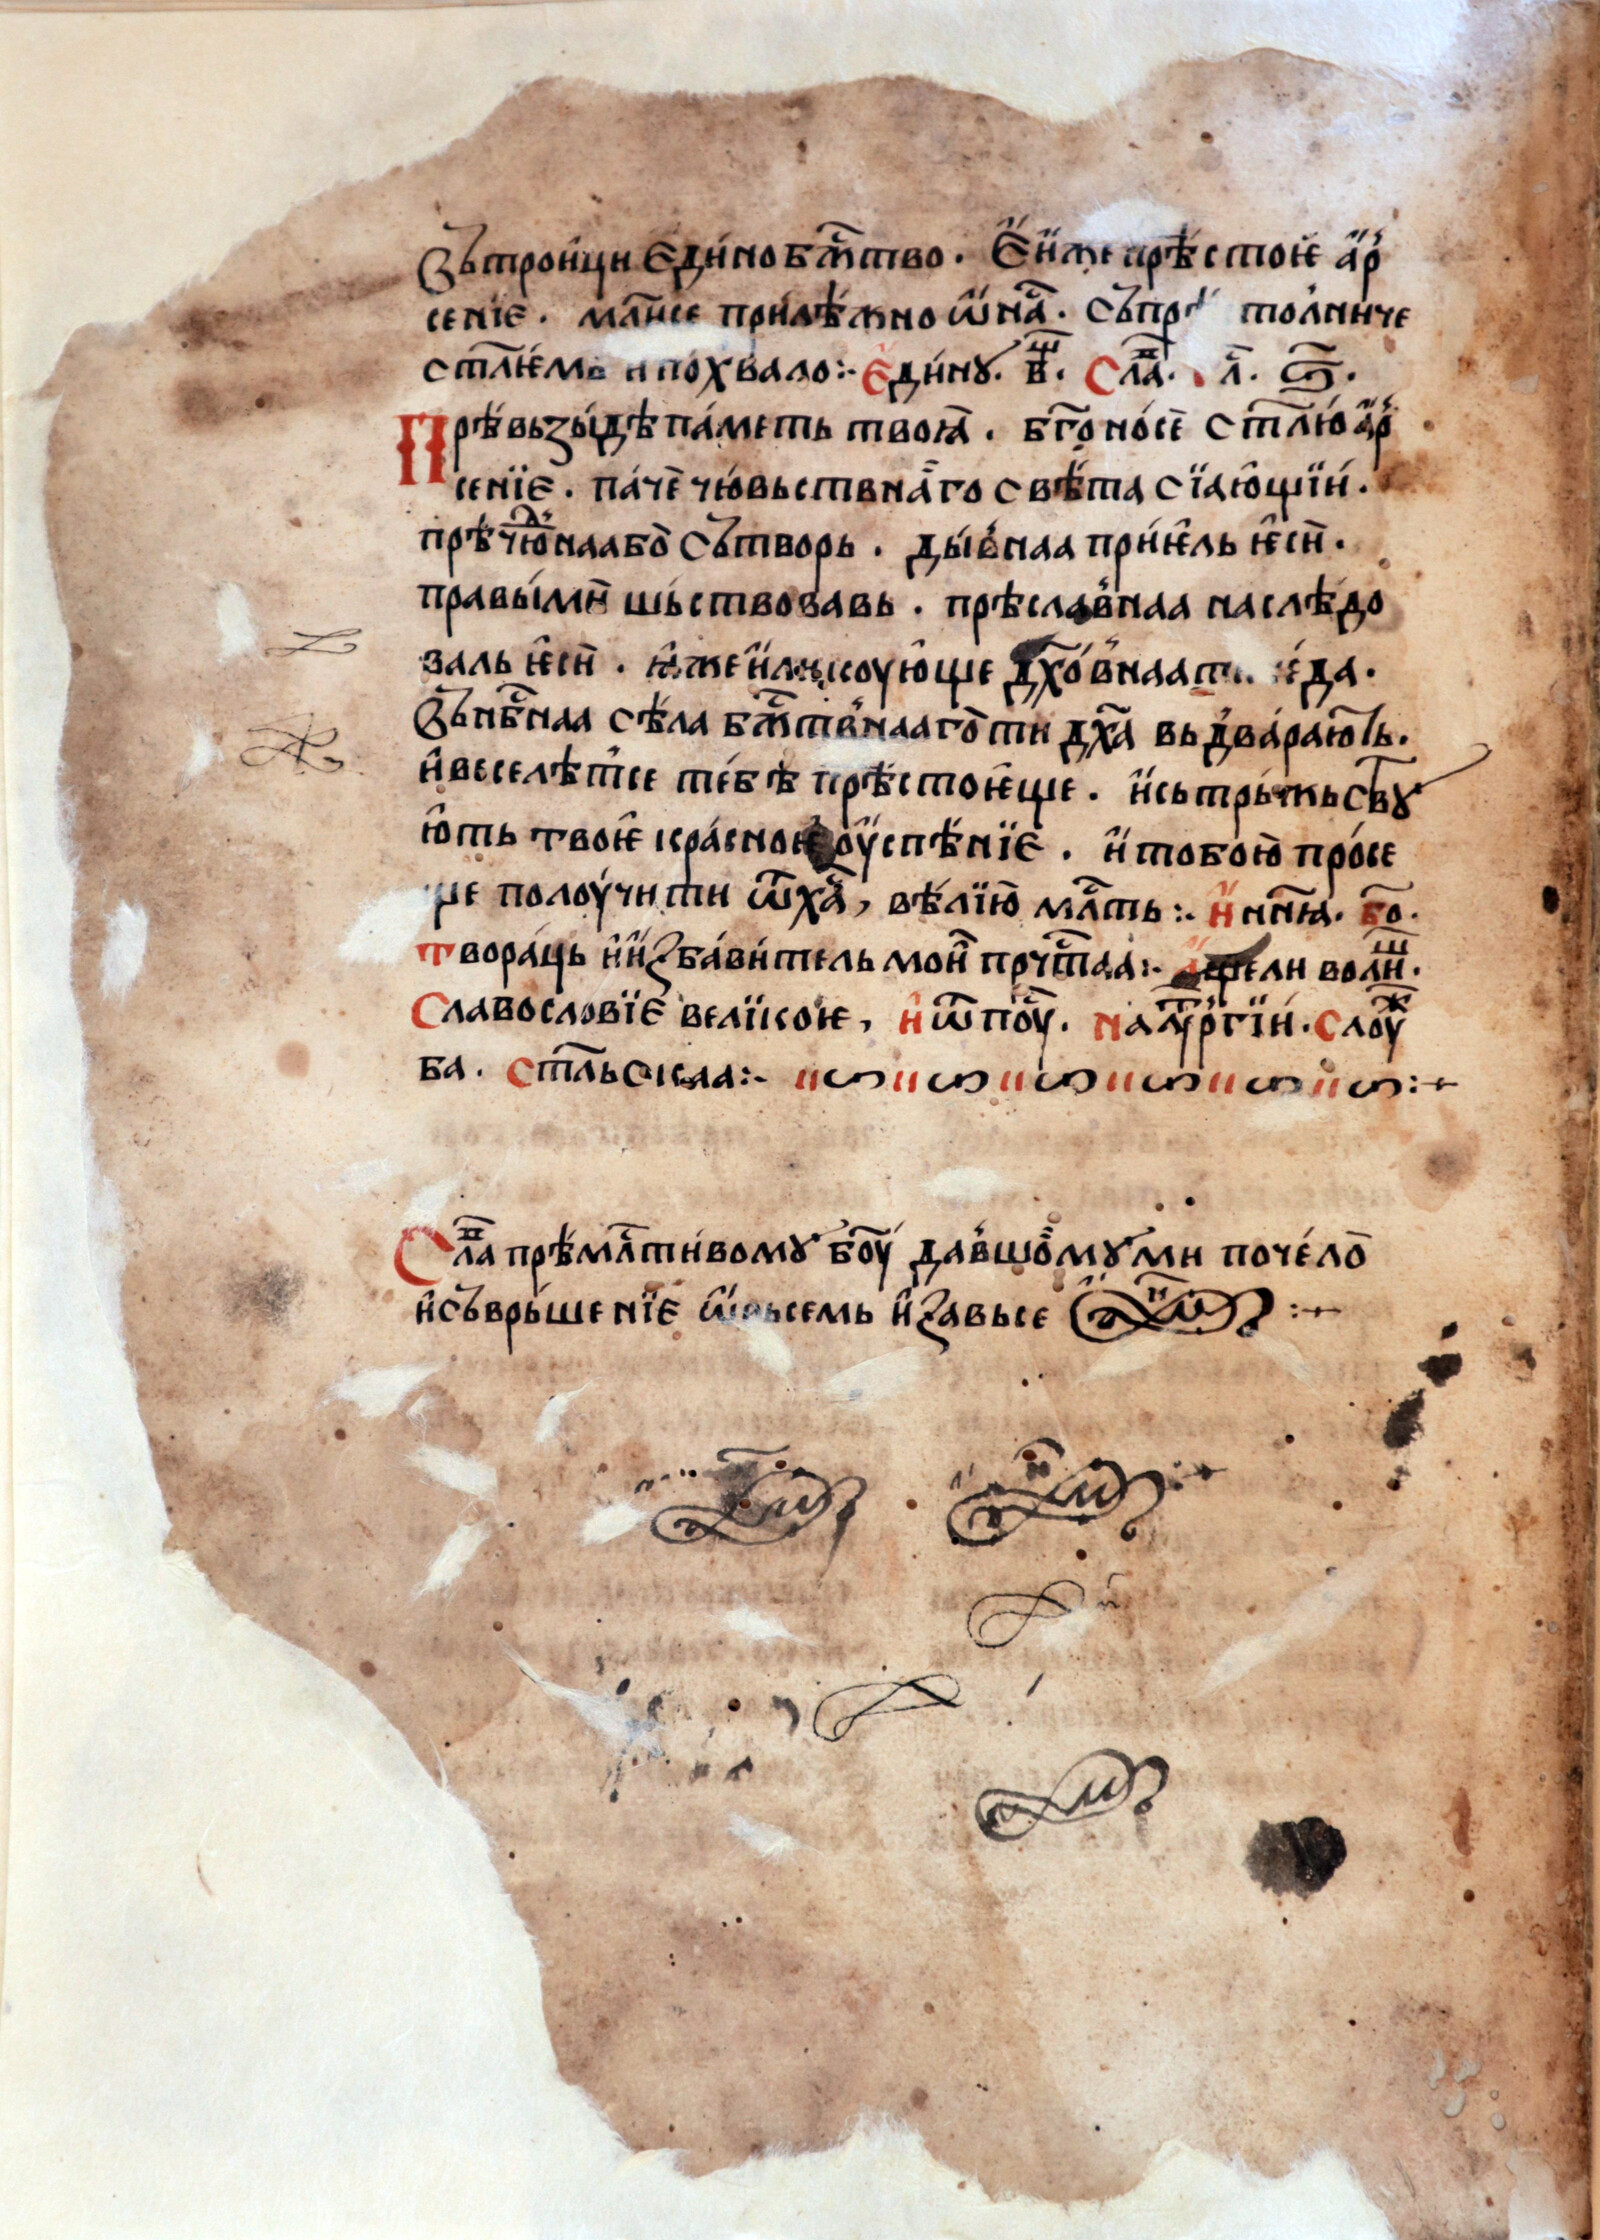 въ трои́ци є҆ди́но бж҃ство . є҆и҆же прѣ́стоꙗ а҆р
сенїе . мл҃исе прилѣ́жно ѡ҆ на҃ . съпрѣ толниче
ст҃лѥмь и похвало :· є҆ди́нꙋ . в҃ . сла҃ . гл҃ . ѕ҃ .
Прѣ́вьзы́дѣ па́меть твоꙗ̀ . бг҃оно́се ст҃лю а҆р
сенїе . па́че чю́вьствнаго свѣ́та сїаю҆щїи .
прѣчю҃днаа бо̀ сътворь . ды́внаа прїи́ѥль ѥ҆сѝ .
правы́ми шьствовавь . прѣславнаа наслѣ́до
валь ѥ҆сѝ . ꙗ҆же и ликоую҆ще дх҃о́внаа да .
въ нб҃наа сѣ́ла бж҃ствнаа го́ти дх҃а вь два́раю҆ть .
и҆ веселѣ́тсе те́бѣ прѣ́стоѥ҆ще . и҆ сь тръ́жьствꙋ
ю҆ть твоѥ҆ кра́сноѥ оу҆спѣ́нїе . и҆ тобою̀ про́се
ще полоу́чити ѿ ха҃ , вѣ́лїю мл҃ть :· и҆ нн҃ꙗ . бо҃ .
твора́ць и҆ и҆зба́ви́тель мои̂ прч҃таа :· а҆ще ли воли .
Славословїе велїкоѥ , и҆ ѿпоу҃ . на лѵ҃ргїи . слоуж
ба . ст҃льскаа :·
Сла҃ прѣмл҃ти́вомꙋ бо҃у да́вшомꙋ ми поче́ло
и҆ съврьшенїе ѡ҆ вьсемь и҆ за вьсе ами҃н :·